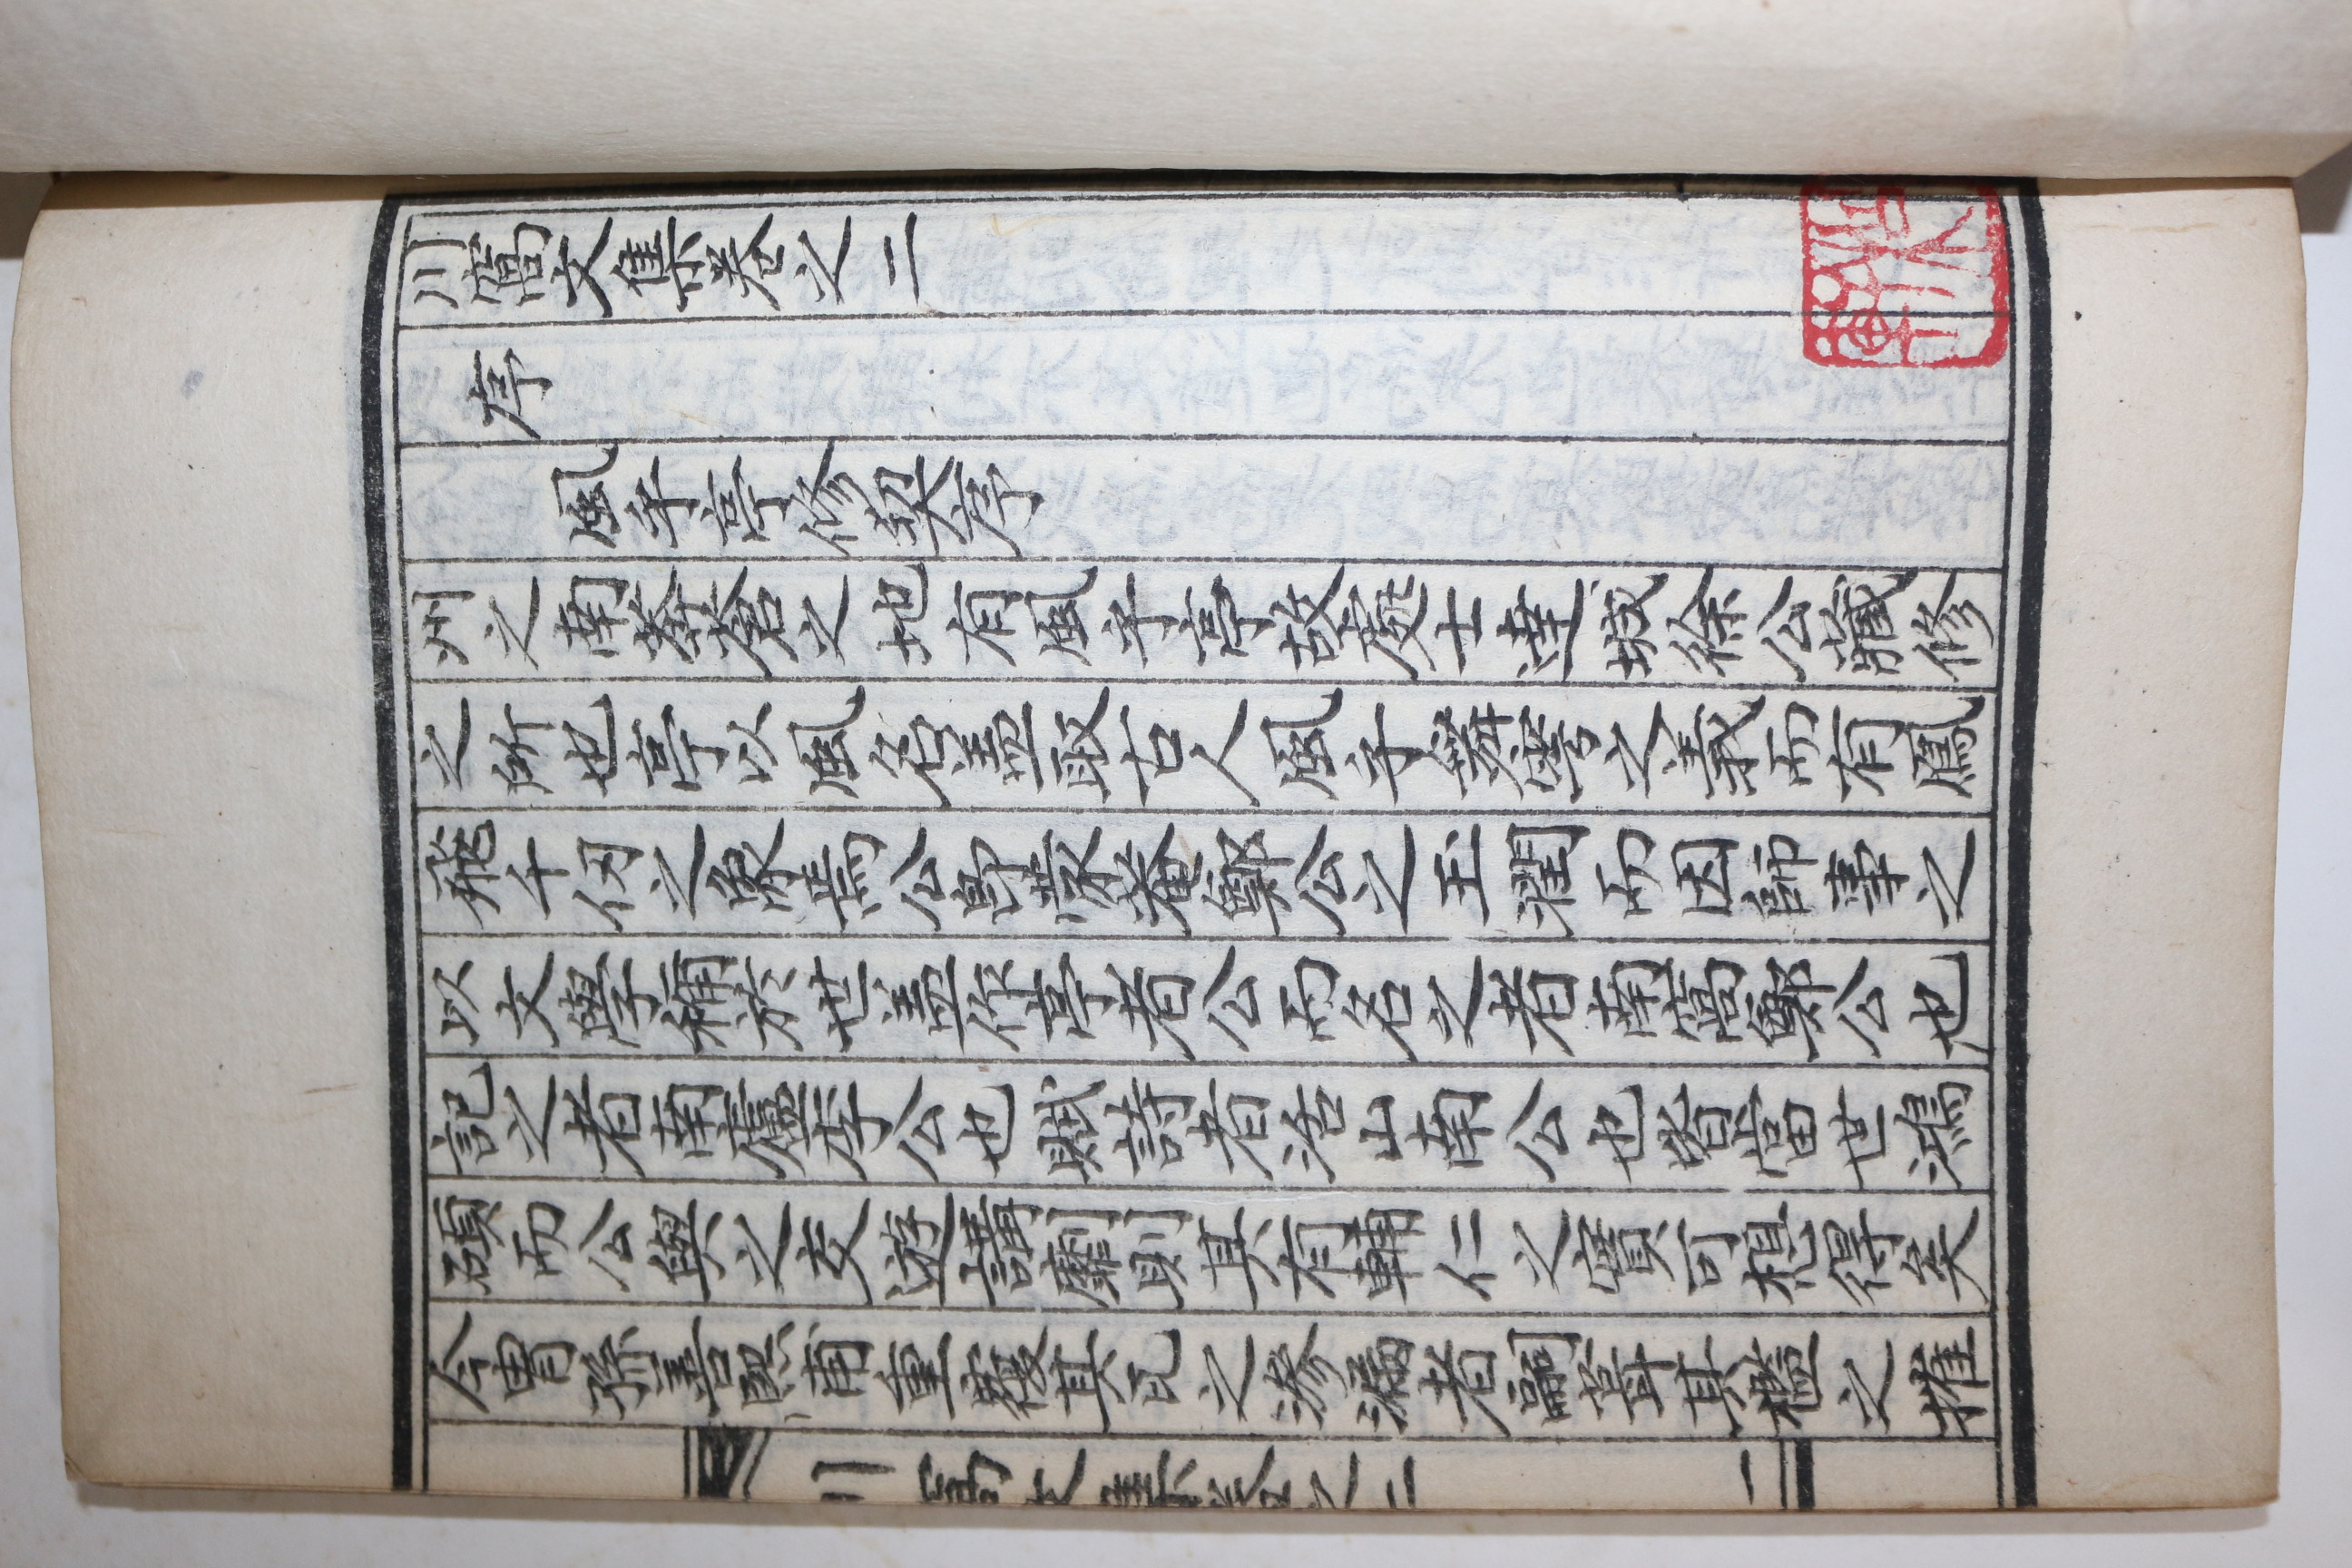 川窩文集卷之二
序
風乎亭修契序
州之南莽蒼之地有風乎亭故處士達城徐公藏修
之所也亭以風名盖取古人風乎舞雩之義而有鳳
飛千仞之象焉公卽蒙菴鄭公之玉潤而因師事之
以文學稱於世盖作亭者公而名之者南窩鄭公也
記之者南廬李公也賦詩者活山南公也皆當世鴻
碩而公與之交遊講劘則其有輔仁之實可想得矣
今胄孫善熙甫重覆其瓦之滲漏者嗣葺其檻之摧
川窩文集卷之二
一